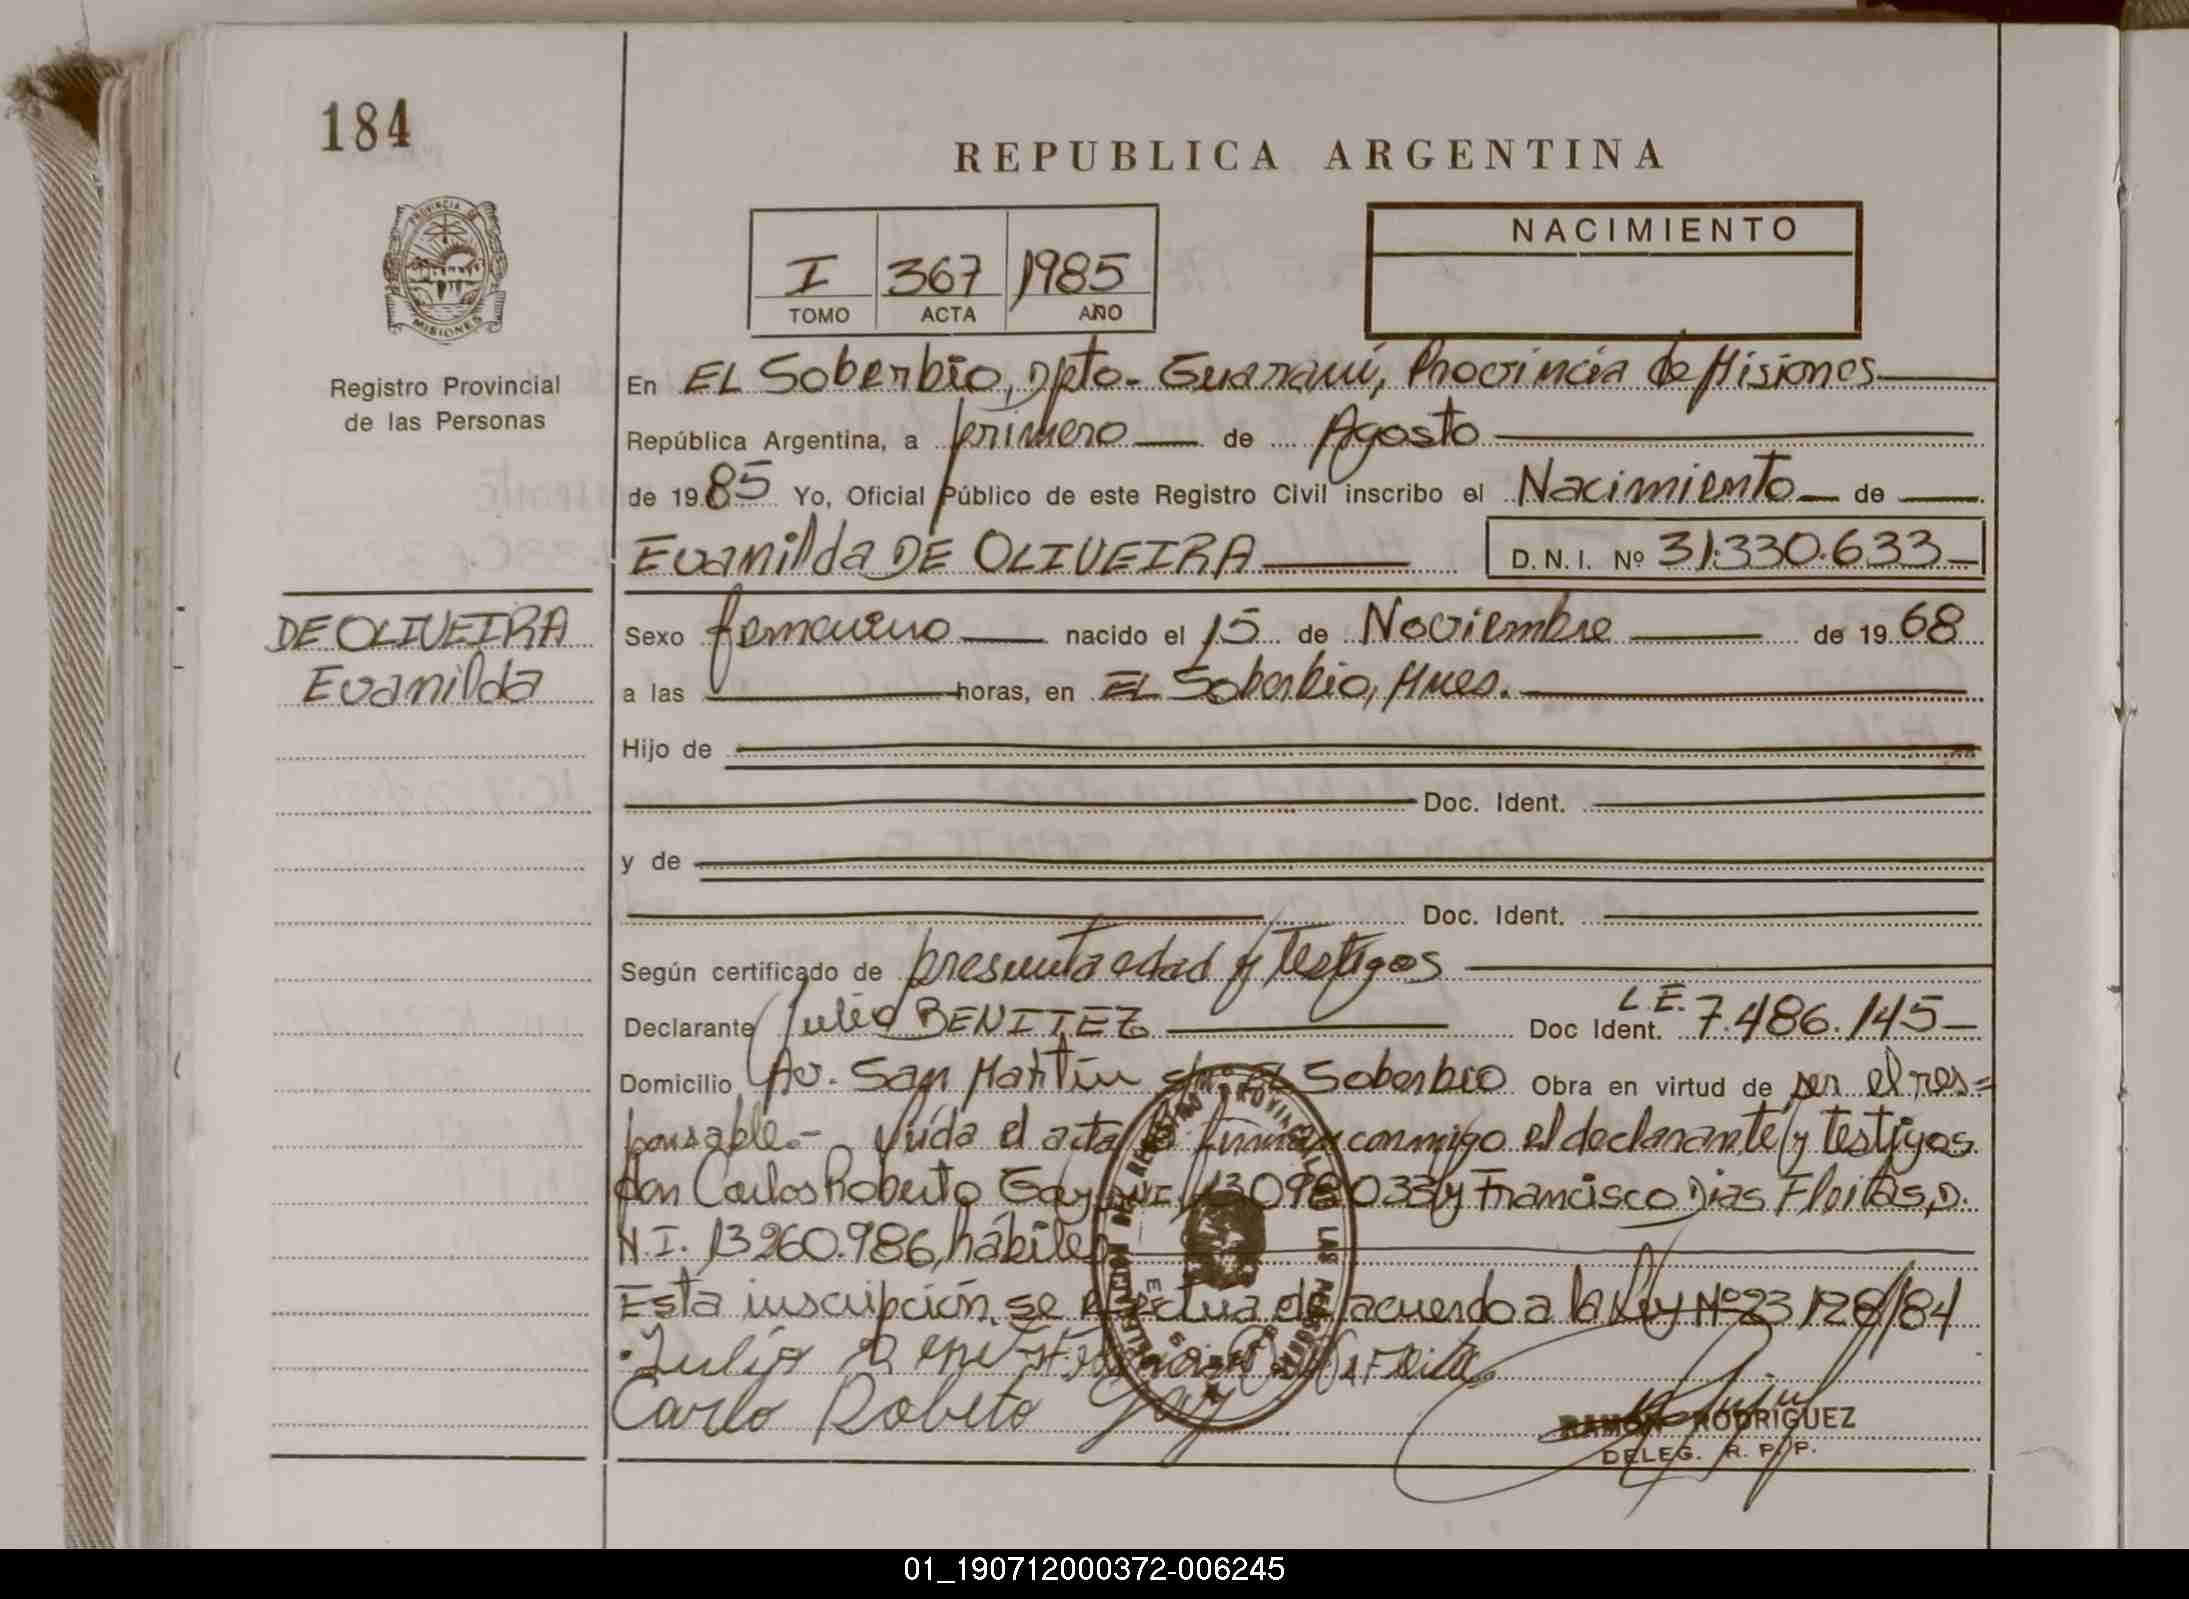 184
REPUBLICA ARGENTINA
PROVINCIA DE
MISIONES
Registro Provincial
de las Personas
I 367 1985
TOMO ACTA AÑO
NACIMIENTO
En EL Soberbio, Dpto. Guaraní, Provincia de Misiones
República Argentina, a primero de Agosto
de 1985 Yo, Oficial Público de este Registro Civil inscribo el Nacimiento de
Evanilda DE OLIVEIRA D.N.I. Nº 31.330.633
DE OLIVEIRA
Evanilda
Sexo femenino nacido el 15 de Noviembre de 1968
a las horas, en EL Soberbio, Mnes.
Hijo de
Doc. Ident.
y de
Doc. Ident.
Según certificado de presunta edad y testigos
Declarante Julio BENITEZ Doc Ident. L.E. 7.486.145
Domicilio Av. San Martín s/nº EL Soberbio Obra en virtud de ser el res=
ponsable.- Leída el acta la firman conmigo el declarante y testigos
don Carlos Roberto Gay, DNI. 13098033 y Francisco Dias Floitas, D.
N.I. 13260.986, hábiles
Esta inscripción se efectua de acuerdo a la Ley Nº 23128/84
Julio Benitez
Carlo Robeto Gay
RAMON RODRIGUEZ
DELEG. R. P. P.
01_190712000372-006245